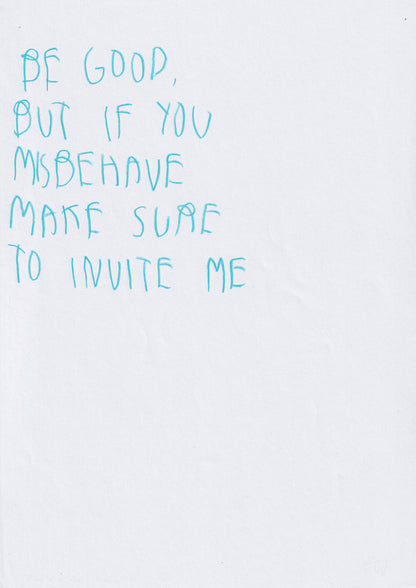 BE GOOD,
BUT IF YOU
MISBEHAVE
MAKE SURE
TO INVITE ME